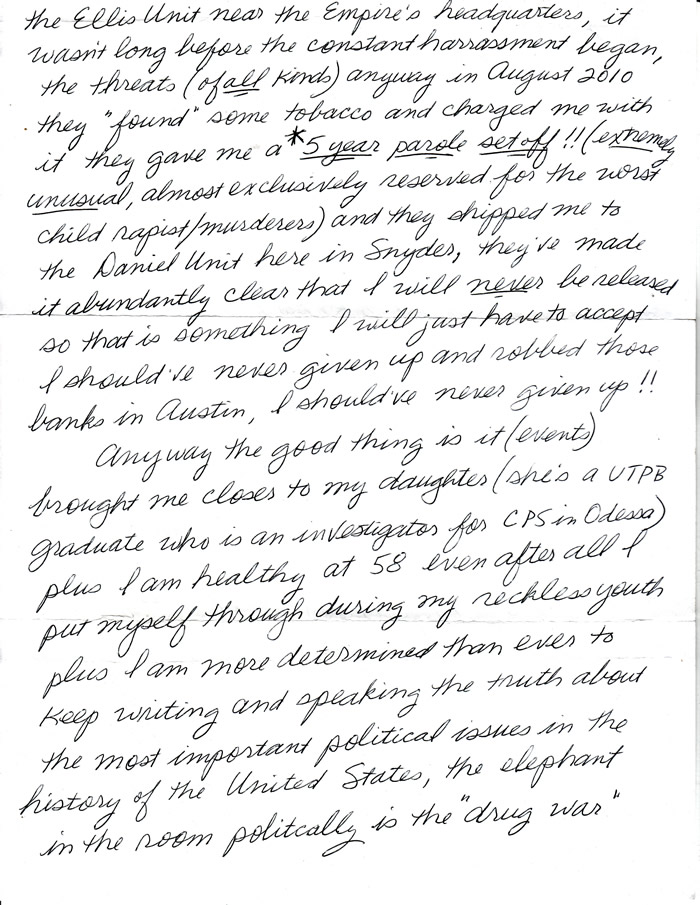 the Ellis Unit near the Empire's headquarters, it
wasn't long before the constant harrassment began,
the threats (of all kinds) anyway in August 2010
they "found" some tobacco and charged me with
it they gave me a *5 year parole set off!! (extremely
unusual, almost exclusively reserved for the worst
child rapist/murderers) and they shipped me to
the Daniel Unit here in Snyder, they've made
it abundantly clear that I will never be released
so that is something I will just have to accept
I should've never given up and robbed those
banks in Austin, I should've never given up!!
Anyway the good thing is it (events)
brought me closer to my daughter (she's a UTPB
graduate who is an investigator for CPS in Odessa)
plus I am healthy at 58 even after all I
put myself through during my reckless youth
plus I am more determined than ever to
keep writing and speaking the truth about
the most important political issues in the
history of the United States, the elephant
in the room politcally is the "drug war"